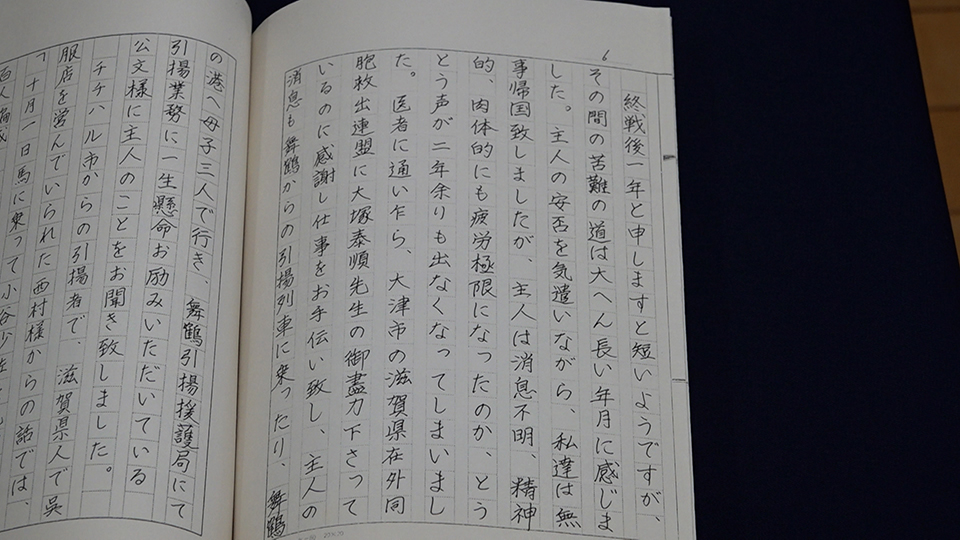 6
終戦後一年と申しますと短いようですが、
その間の苦難の道は大へん長い年月に感じま
した。主人の安否を気遣いながら、私達は無
事帰国致しましたが、主人は消息不明、精神
的、肉体的にも疲労極限になったのか、とう
とう声が二年余りも出なくなってしまいまし
た。医者に通い乍ら、大津市の滋賀県在外同
胞救出連盟に大塚泰順先生の御盡力下さって
いるのに感謝し仕事をお手伝い致し、主人の
消息も舞鶴からの引揚列車に乗ったり、舞鶴
の港へ母子三人で行き、舞鶴引揚援護局にて
引揚業務に一生懸命お励みいただいている
公文様に主人のことをお聞き致しました。
チチハル市からの引揚者で、滋賀県人で呉
服店を営んでいられた西村様からの話では、
「十月一日馬に乗って小谷少佐
百人編成